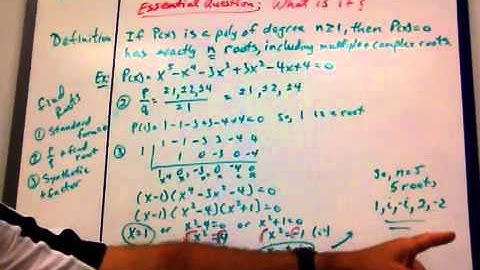 Essential Question: What is it?
Definition If P(x) is a poly of degree n≥1, then P(x)=0
has exactly n roots, including multiple + complex roots.
Ex: P(x)= x⁵-x⁴-3x³+3x²-4x+4=0
Find Roots
① Standard form = 0
② P/q + find root
③ Synthetic + factor
② P/q = ±1,±2,±4 / ±1 = ±1, ±2, ±4
P(1)= 1-1-3+3-4+4=0 So, 1 is a root
③ 1 | 1 -1 -3 3 -4 4
1 0 -3 0 -4
1 0 -3 0 -4 0
(x-1)(x⁴-3x²-4)=0
(x-1)(x²-4)(x²+1)=0
x=1 or x²-4=0 or x²+1=0
So, n=5
5 roots
1, i, -i, 2, -2